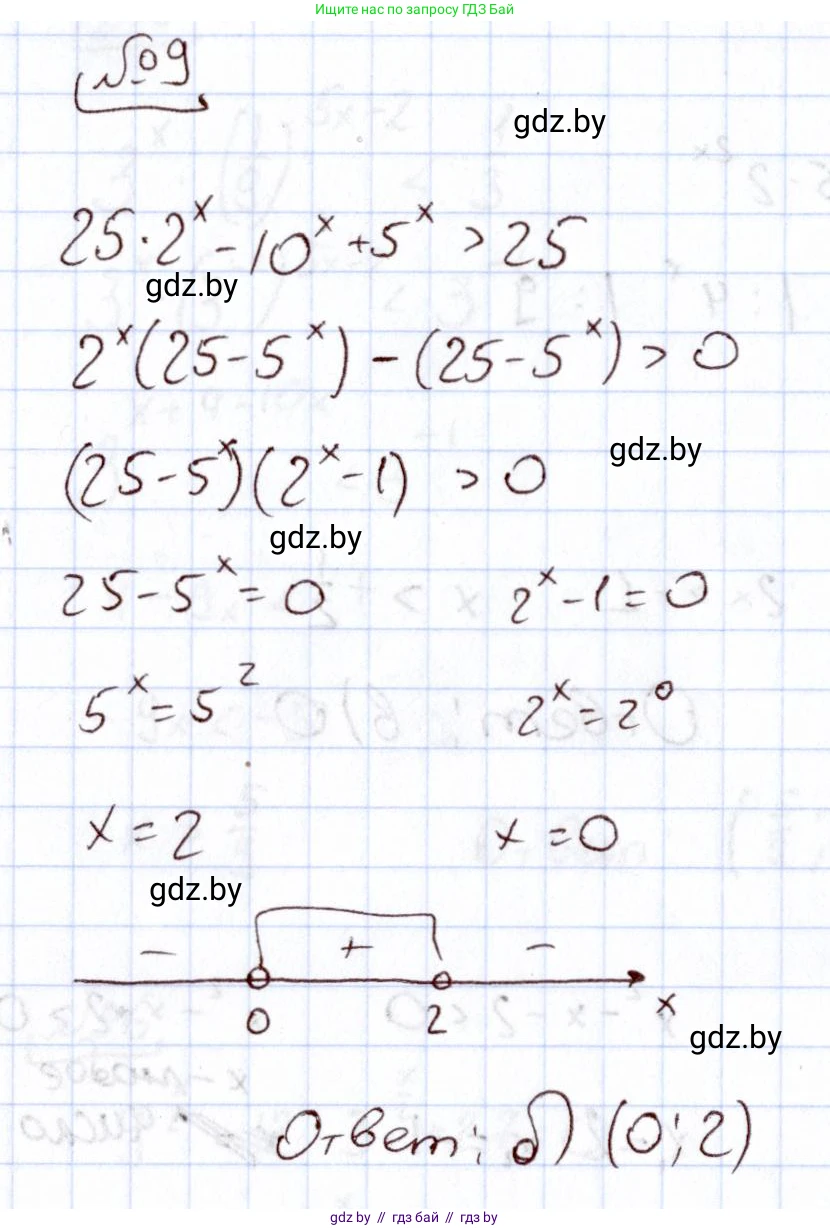 Ищите нас по запросу ГДЗ Бай
№09
gdz.by
25·2^x - 10^x + 5^x > 25
gdz.by
2^x(25-5^x) - (25-5^x) > 0
(25-5^x)(2^x-1) > 0
gdz.by
gdz.by
25-5^x = 0 2^x-1 = 0
5^x = 5^2 2^x = 2^0
x = 2 x = 0
gdz.by
- + -
0 2 x
gdz.by
Ответ: б) (0; 2)
gdz.by // гдз бай // гдз by